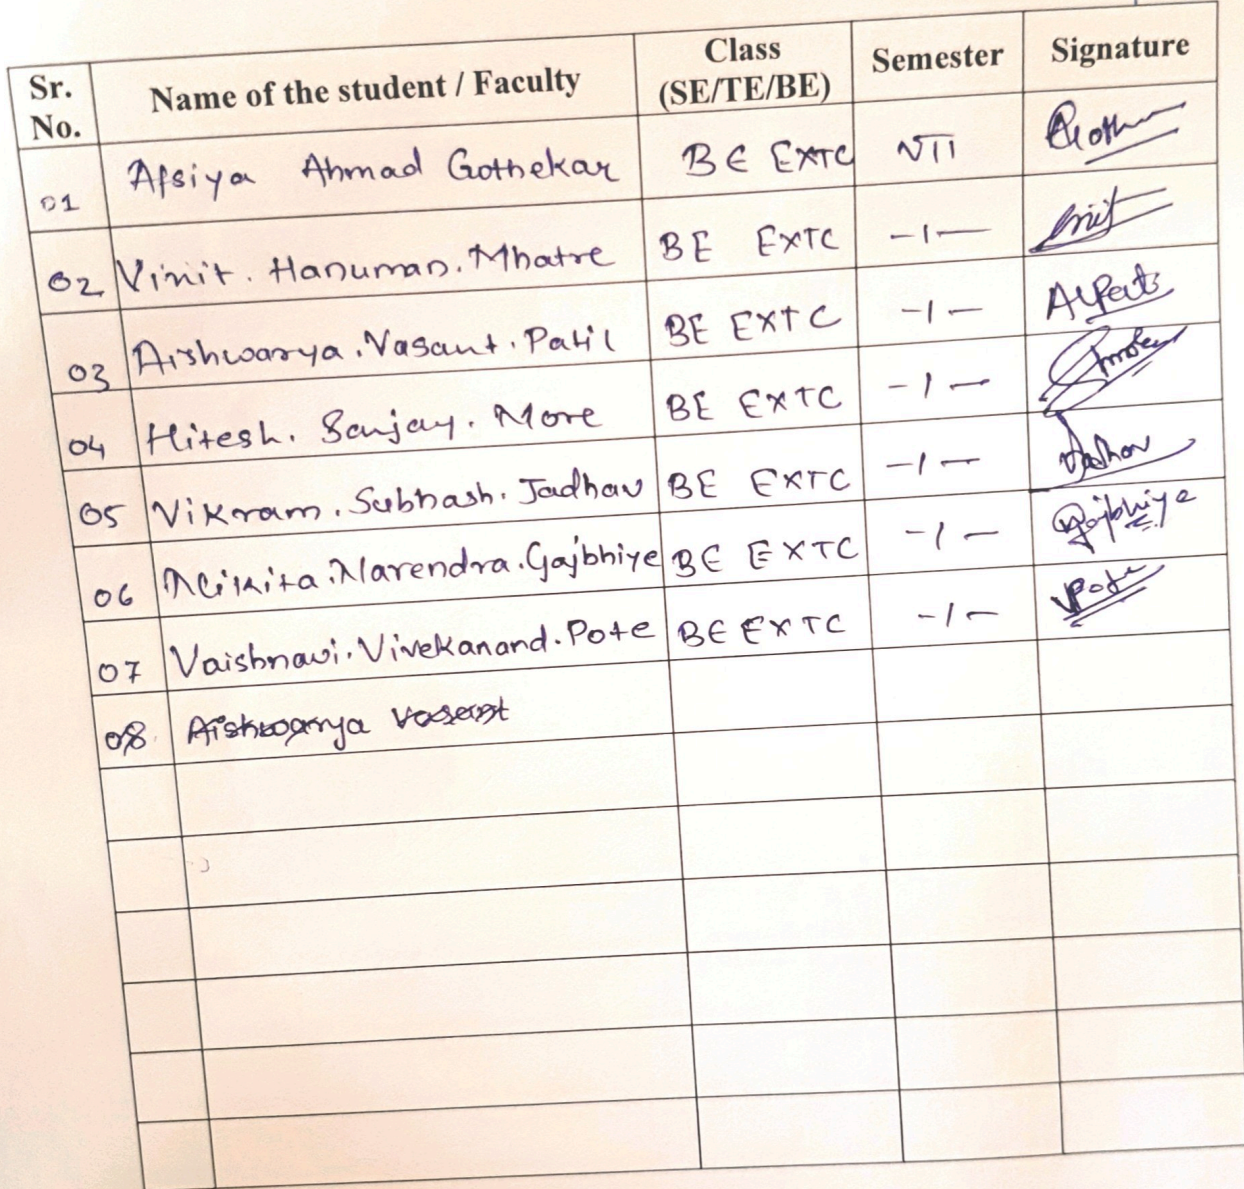 Sr. No. Name of the student / Faculty Class (SE/TE/BE) Semester Signature
01 Afsiya Ahmad Gothekar BE EXTC VII
02 Vinit. Hanuman. Mhatre BE EXTC -1-
03 Aishwarya. Vasant. Patil BE EXTC -1-
04 Hitesh. Sanjay. More BE EXTC -1-
05 Vikram. Subhash. Jadhav BE EXTC -1-
06 Nikita. Narendra. Gajbhiye BE EXTC -1- Gajbhiye
07 Vaishnavi. Vivekanand. Pote BE EXTC -1- VPote
08 Aishwarya Vasant